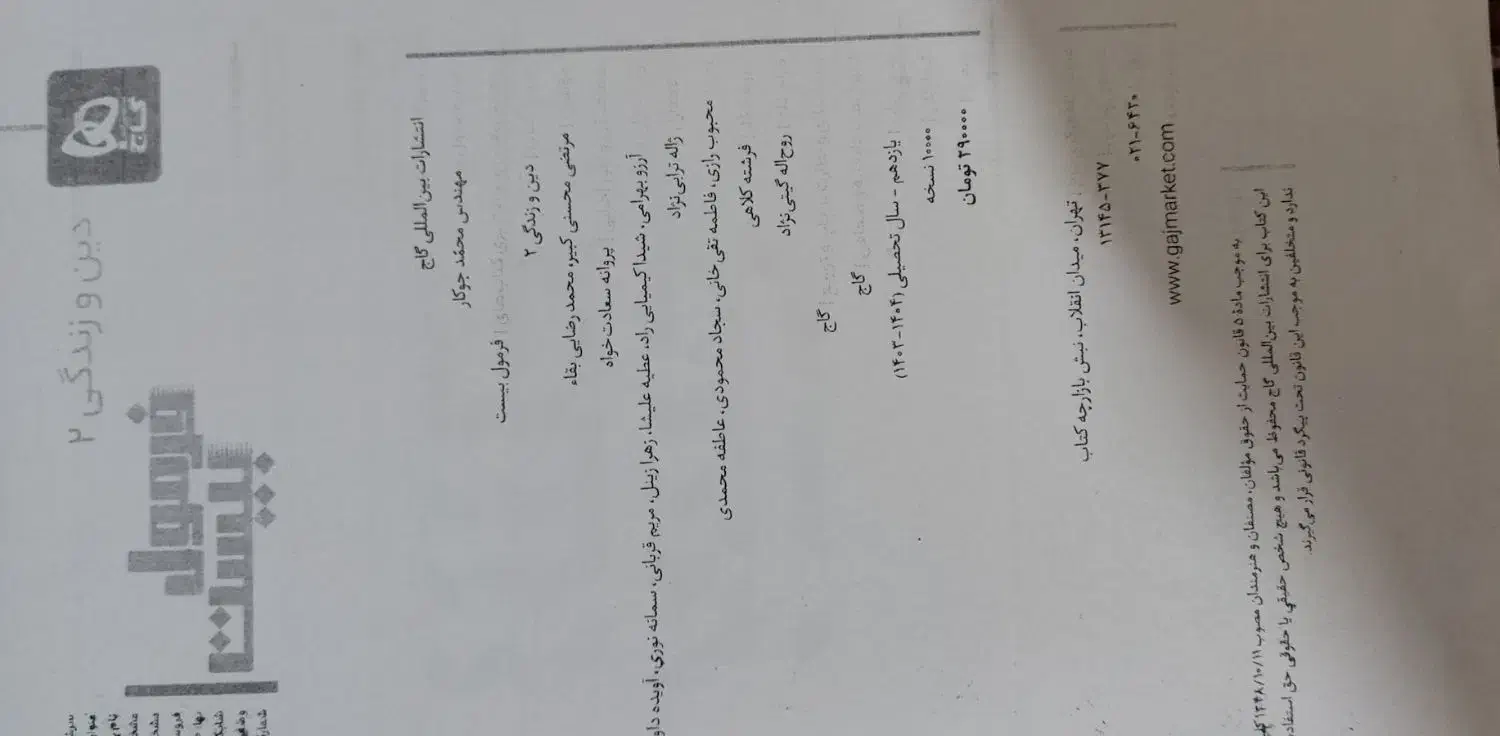 گاج
دین و زندگی ۲
فرمول
بیست
انتشارات بین‌المللی گاج
مهندس محمد جوکار
فرمول بیست
دین و زندگی ۲
مرتضی محسنی کبیر، محمد رضایی بقاء
پروانه سعادت‌خواه
آرزو بهرامی، شیدا کیمیایی راد، عطیه علیشا، زهرا زینل، مریم قربانی، سمانه نوری، آویده داو
ژاله ترابی نژاد
محبوب رازی، فاطمه تقی خانی، سجاد محمودی، عاطفه محمدی
فرشته کلاهی
روح‌اله گیتی نژاد
گاج
گاج
یازدهم - سال تحصیلی (۱۴۰۴-۱۴۰۳)
۱۰۰۰۰ نسخه
۲۹۰۰۰۰ تومان
تهران، میدان انقلاب، نبش بازارچه کتاب
۱۳۱۴۵-۳۷۷
۰۲۱-۶۴۲۰
www.gajmarket.com
به موجب مادهٔ ۵ قانون حمایت از حقوق مؤلفان، مصنفان و هنرمندان مصوب ۱۳۴۸/۱۰/۱۱
این کتاب برای انتشارات بین‌المللی گاج محفوظ می‌باشد و هیچ شخص حقیقی یا حقوقی حق استفاده
ندارد و متخلفین به موجب این قانون تحت پیگرد قانونی قرار می‌گیرند.